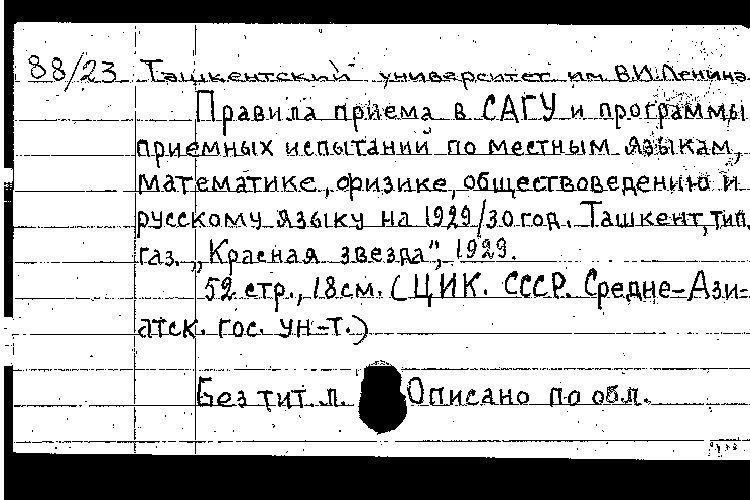 88/23 Ташкентский университет им. В.И. Ленина.
Правила приема в САГУ и программы
приемных испытаний по местным языкам,
математике, физике, обществоведению и
русскому языку на 1929/30 год. Ташкент, тип.
газ. „Красная звезда", 1929.
52 стр., 18 см. (ЦИК. СССР. Средне-Ази-
атск. гос. ун-т.)
Без тит. л. Описано по обл.